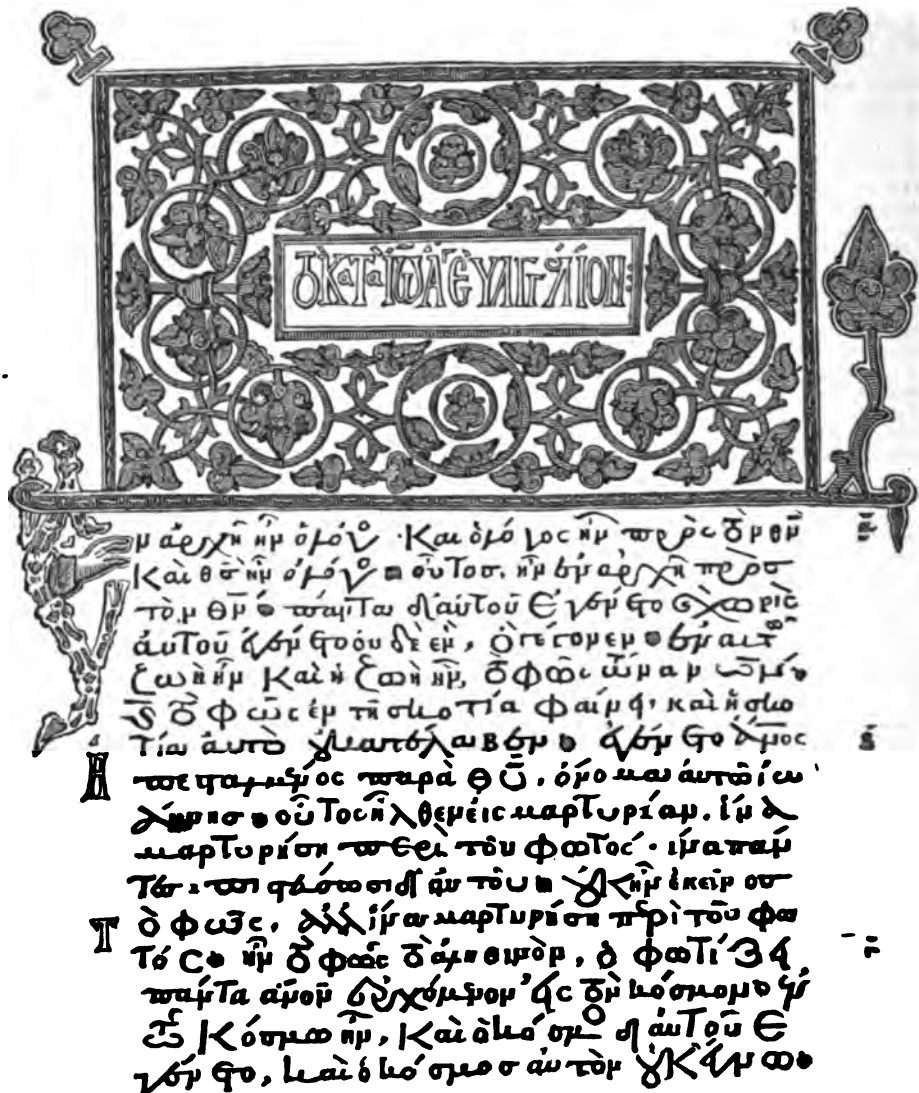 ΤΟ ΚΑΤΑ ΙΩΑ ΕΥΑΓΓΕΛΙΟΝ:
Ἐν ἀρχῇ ἦν ὁ λόγος · Καὶ ὁ λόγος ἦν πρὸς τὸν θν
Καὶ θς ἦν ὁ λόγος · οὗτος ἦν ἐν ἀρχῇ πρὸς
τὸν θν · πάντα δι αὐτοῦ ἐγένετο καὶ χωρὶς
αὐτοῦ ἐγένετο οὐδὲ ἕν, ὃ γέγονεν · ἐν αὐτῶ
ζωὴ ἦν Καὶ ἡ ζωὴ ἦν, τὸ φῶς τῶν ανων ·
καὶ τὸ φῶς ἐν τῇ σκοτία φαίνει· καὶ ἡ σκο
τία αὐτὸ οὐ κατέλαβεν · ἐγένετο ανος
ἀπεσταλμένος παρὰ θυ, ὄνομα αὐτῶ ἰω
άννης · οὗτος ἦλθεν εἰς μαρτυρίαν, ἵνα
μαρτυρήση περὶ τοῦ φωτός · ἵνα πάν
τες πιστεύσωσι δι αὐτοῦ · οὐκ ἦν ἐκεῖνος
τὸ φῶς, ἀλλ ἵνα μαρτυρήση περὶ τοῦ φω
τός · ἦν τὸ φῶς τὸ ἀληθινὸν, ὃ φωτίζει
πάντα ανον ἐρχόμενον εἰς τὸν κόσμον · ἐν
τῶ Κόσμω ἦν, Καὶ ὁ κόσμος δι αὐτοῦ ἐ
γένετο, καὶ ὁ κόσμος αὐτὸν οὐκ ἔγνω ·